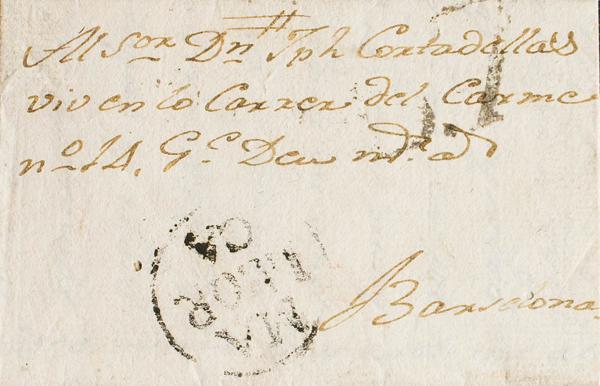 Al Sor. Dn. Jph Cortadellas
viv en lo Carrer del Carme
no. 14. G.e Deu m.s a.s
Barselona
MA
LLOR
CA